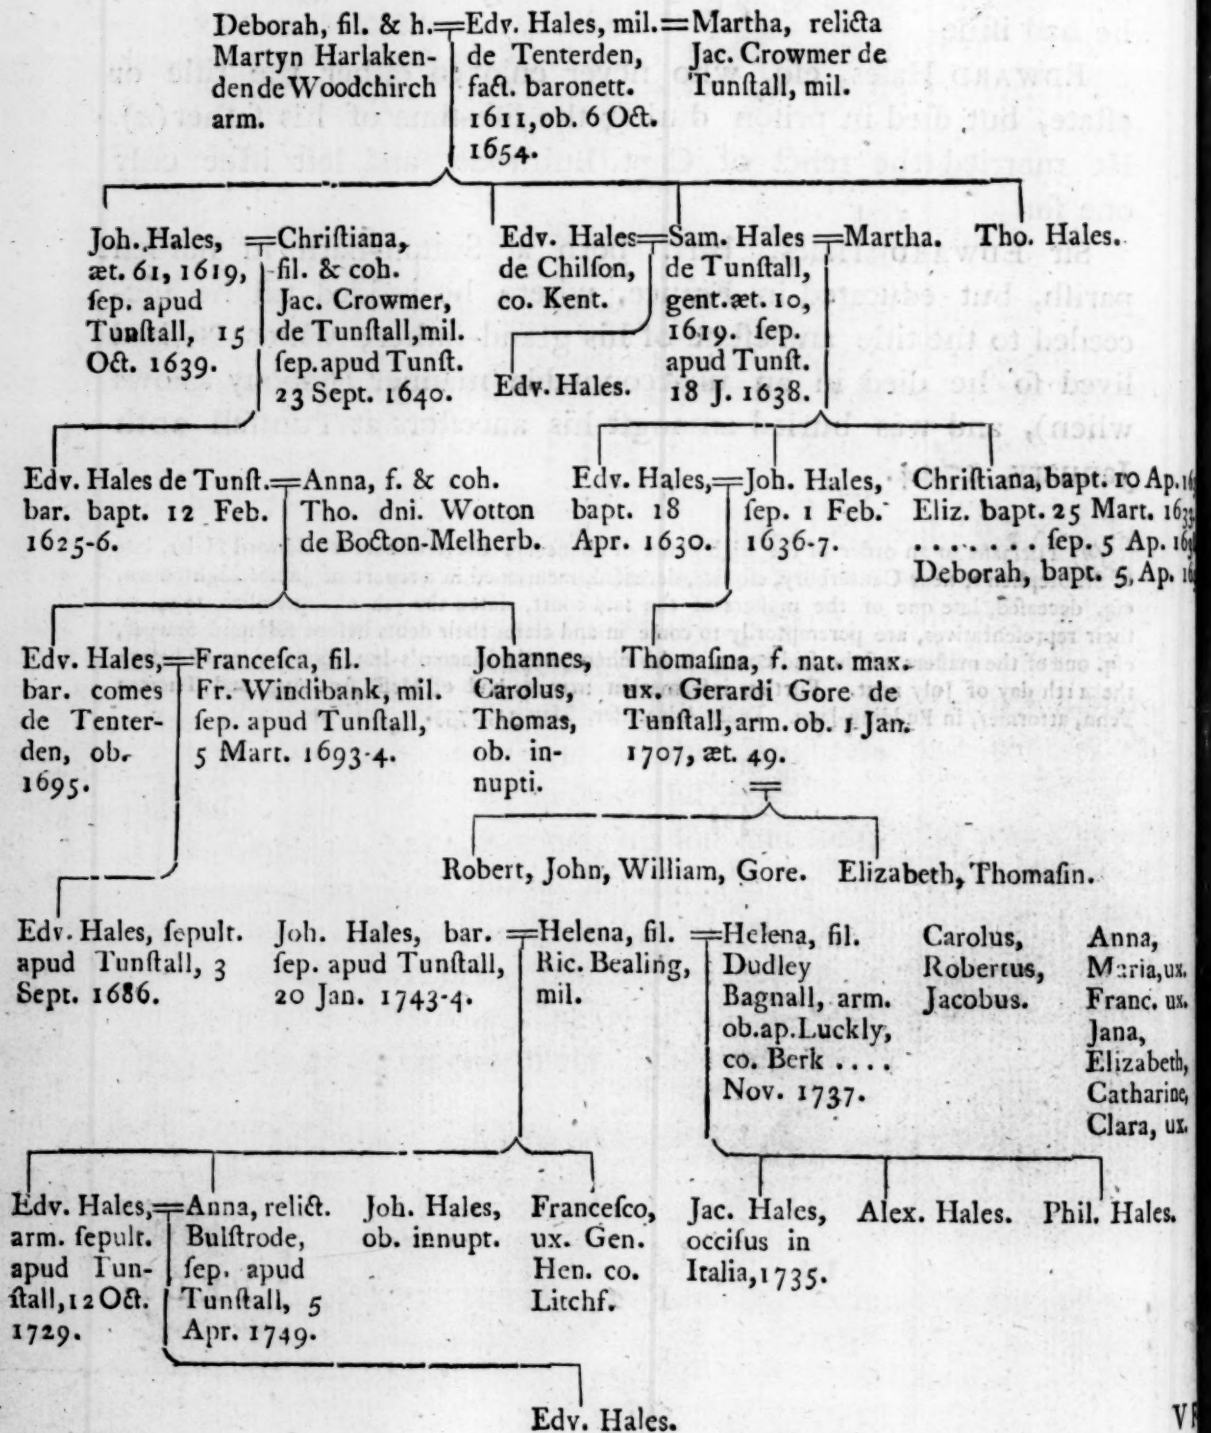 Deborah, fil. & h.
Martyn Harlaken-
den de Woodchirch
arm.
Edv. Hales, mil.
de Tenterden,
fact. baronett.
1611, ob. 6 Oct.
1654.
Martha, relicta
Jac. Crowmer de
Tunſtall, mil.
Joh. Hales,
æt. 61, 1619,
ſep. apud
Tunſtall, 15
Oct. 1639.
Chriſtiana,
fil. & coh.
Jac. Crowmer,
de Tunſtall, mil.
ſep. apud Tunſt.
23 Sept. 1640.
Edv. Hales
de Chilſon,
co. Kent.
Edv. Hales.
Sam. Hales
de Tunſtall,
gent. æt. 10,
1619. ſep.
apud Tunſt.
18 J. 1638.
Martha.
Tho. Hales.
Edv. Hales de Tunſt.
bar. bapt. 12 Feb.
1625-6.
Anna, f. & coh.
Tho. dni. Wotton
de Bocton-Melherb.
Edv. Hales,
bapt. 18
Apr. 1630.
Joh. Hales,
ſep. 1 Feb.
1636-7.
Chriſtiana, bapt. 10 Ap.
Eliz. bapt. 25 Mart.
. . . . . . . . ſep. 5 Ap.
Deborah, bapt. 5, Ap.
Edv. Hales,
bar. comes
de Tenter-
den, ob.
1695.
Franceſca, fil.
Fr. Windibank, mil.
ſep. apud Tunſtall,
5 Mart. 1693-4.
Johannes,
Carolus,
Thomas,
ob. in-
nupti.
Thomaſina, f. nat. max.
ux. Gerardi Gore de
Tunſtall, arm. ob. 1 Jan.
1707, æt. 49.
Robert, John, William, Gore.
Elizabeth, Thomaſin.
Edv. Hales, ſepult.
apud Tunſtall, 3
Sept. 1686.
Joh. Hales, bar.
ſep. apud Tunſtall,
20 Jan. 1743-4.
Helena, fil.
Ric. Bealing,
mil.
Helena, fil.
Dudley
Bagnall, arm.
ob. ap. Luckly,
co. Berk . . . .
Nov. 1737.
Carolus,
Robertus,
Jacobus.
Anna,
Maria, ux.
Franc. ux.
Jana,
Elizabeth,
Catharine,
Clara, ux.
Edv. Hales,
arm. ſepult.
apud Tun-
ſtall, 12 Oct.
1729.
Anna, relict.
Bulſtrode,
ſep. apud
Tunſtall, 5
Apr. 1749.
Joh. Hales,
ob. innupt.
Franceſco,
ux. Gen.
Hen. co.
Litchf.
Jac. Hales,
occiſus in
Italia, 1735.
Alex. Hales.
Phil. Hales.
Edv. Hales.